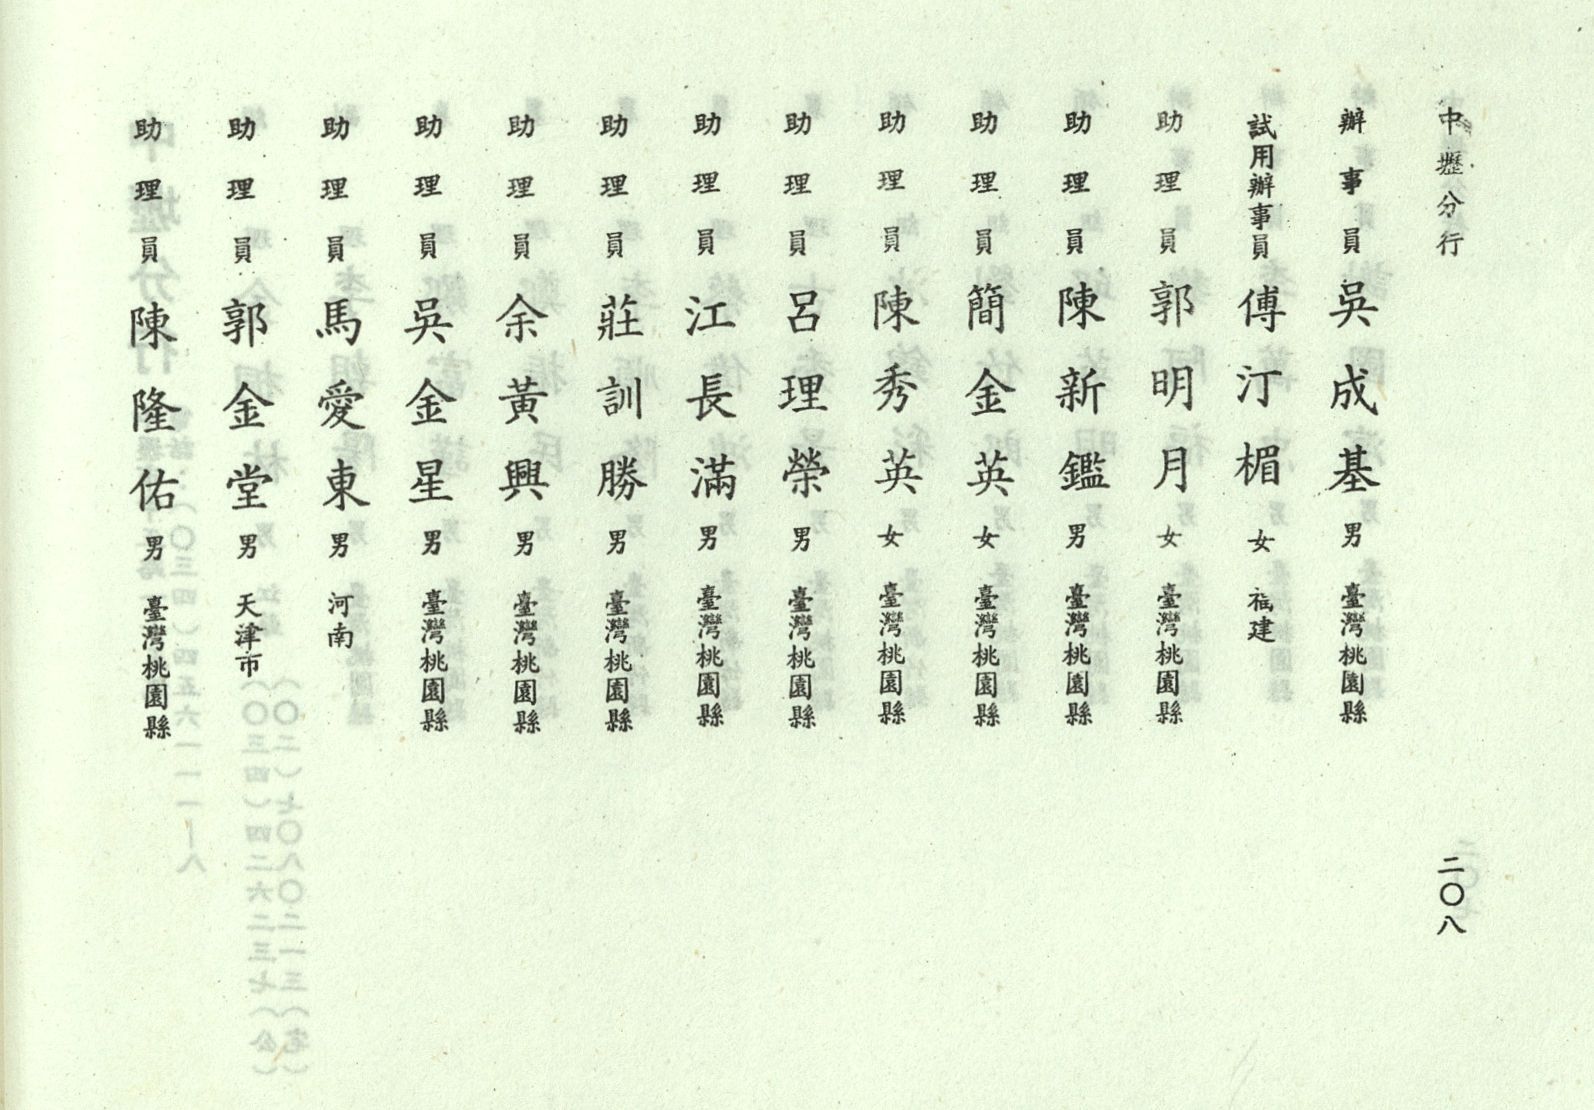 中壢分行
二〇八
辦事員 吳成基 男 臺灣桃園縣
試用辦事員 傅汀楣 女 福建
助理員 郭明月 女 臺灣桃園縣
助理員 陳新鑑 男 臺灣桃園縣
助理員 簡金英 女 臺灣桃園縣
助理員 陳秀英 女 臺灣桃園縣
助理員 呂理榮 男 臺灣桃園縣
助理員 江長滿 男 臺灣桃園縣
助理員 莊訓勝 男 臺灣桃園縣
助理員 余黃興 男 臺灣桃園縣
助理員 吳金星 男 臺灣桃園縣
助理員 馬愛東 男 河南
助理員 郭金堂 男 天津市
助理員 陳隆佑 男 臺灣桃園縣